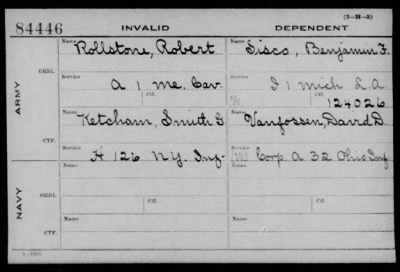 (3-H-3)
84446 INVALID DEPENDENT
Name Rollstone, Robert Name Sisco, Benjamin F.
ORIG.
Service A 1 Me. Cav. Service I 1 Mich L A
Ctf. W. Ctf. 124026
ARMY
Name Ketcham, Smith G. Name Vanfossen, David D.
CTF.
Service H 126 N.Y. Inf. Service W. Corp. A 32 Ohio Inf
NAVY
Name Ctf. Name Ctf.
ORIG.
Service Service
Name Name
CTF.
Service Service